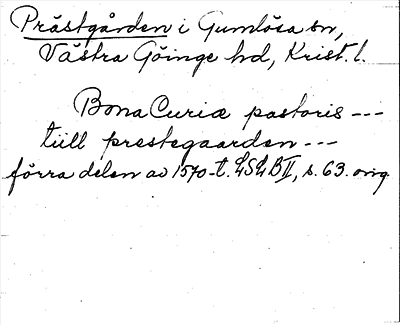 Prästgården i Gumlösa sn,
Västra Göinge hd, Krist. l.
Bona Curiæ pastoris ---
tiill prestegaarden ---
förra delen av 1570-t. LSLB II, s. 63. orig.